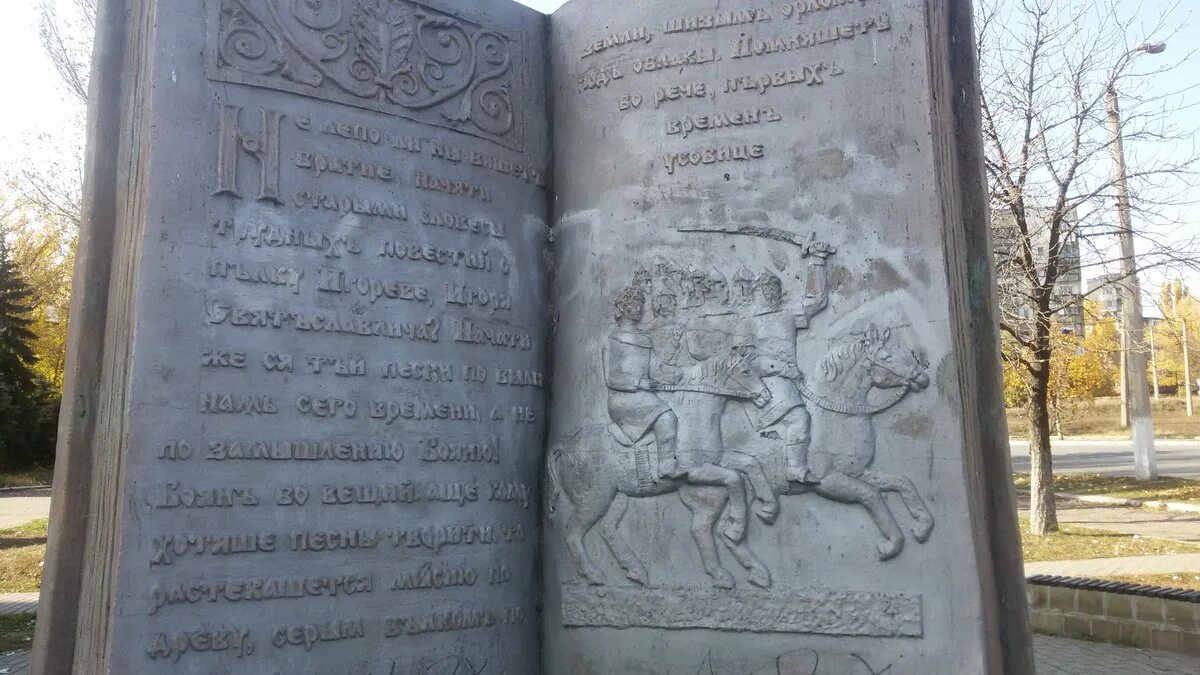 Не лепо ли ны бяшетъ
братие начяти
старыми словесы
трудныхъ повестий о
пълку Игореве, Игоря
Святъславлича? Начати
же ся тъй песни по были
намъ сего времени, а не
по замышлению Бояню!
Боянъ бо вещий аще кому
хотяше песнь творити, то
растекашется мыслию по
древу, серым вълкомъ по
земли, шизымъ орломъ
подъ облакы. Помняшеть
бо рече, първыхъ
временъ
усобице